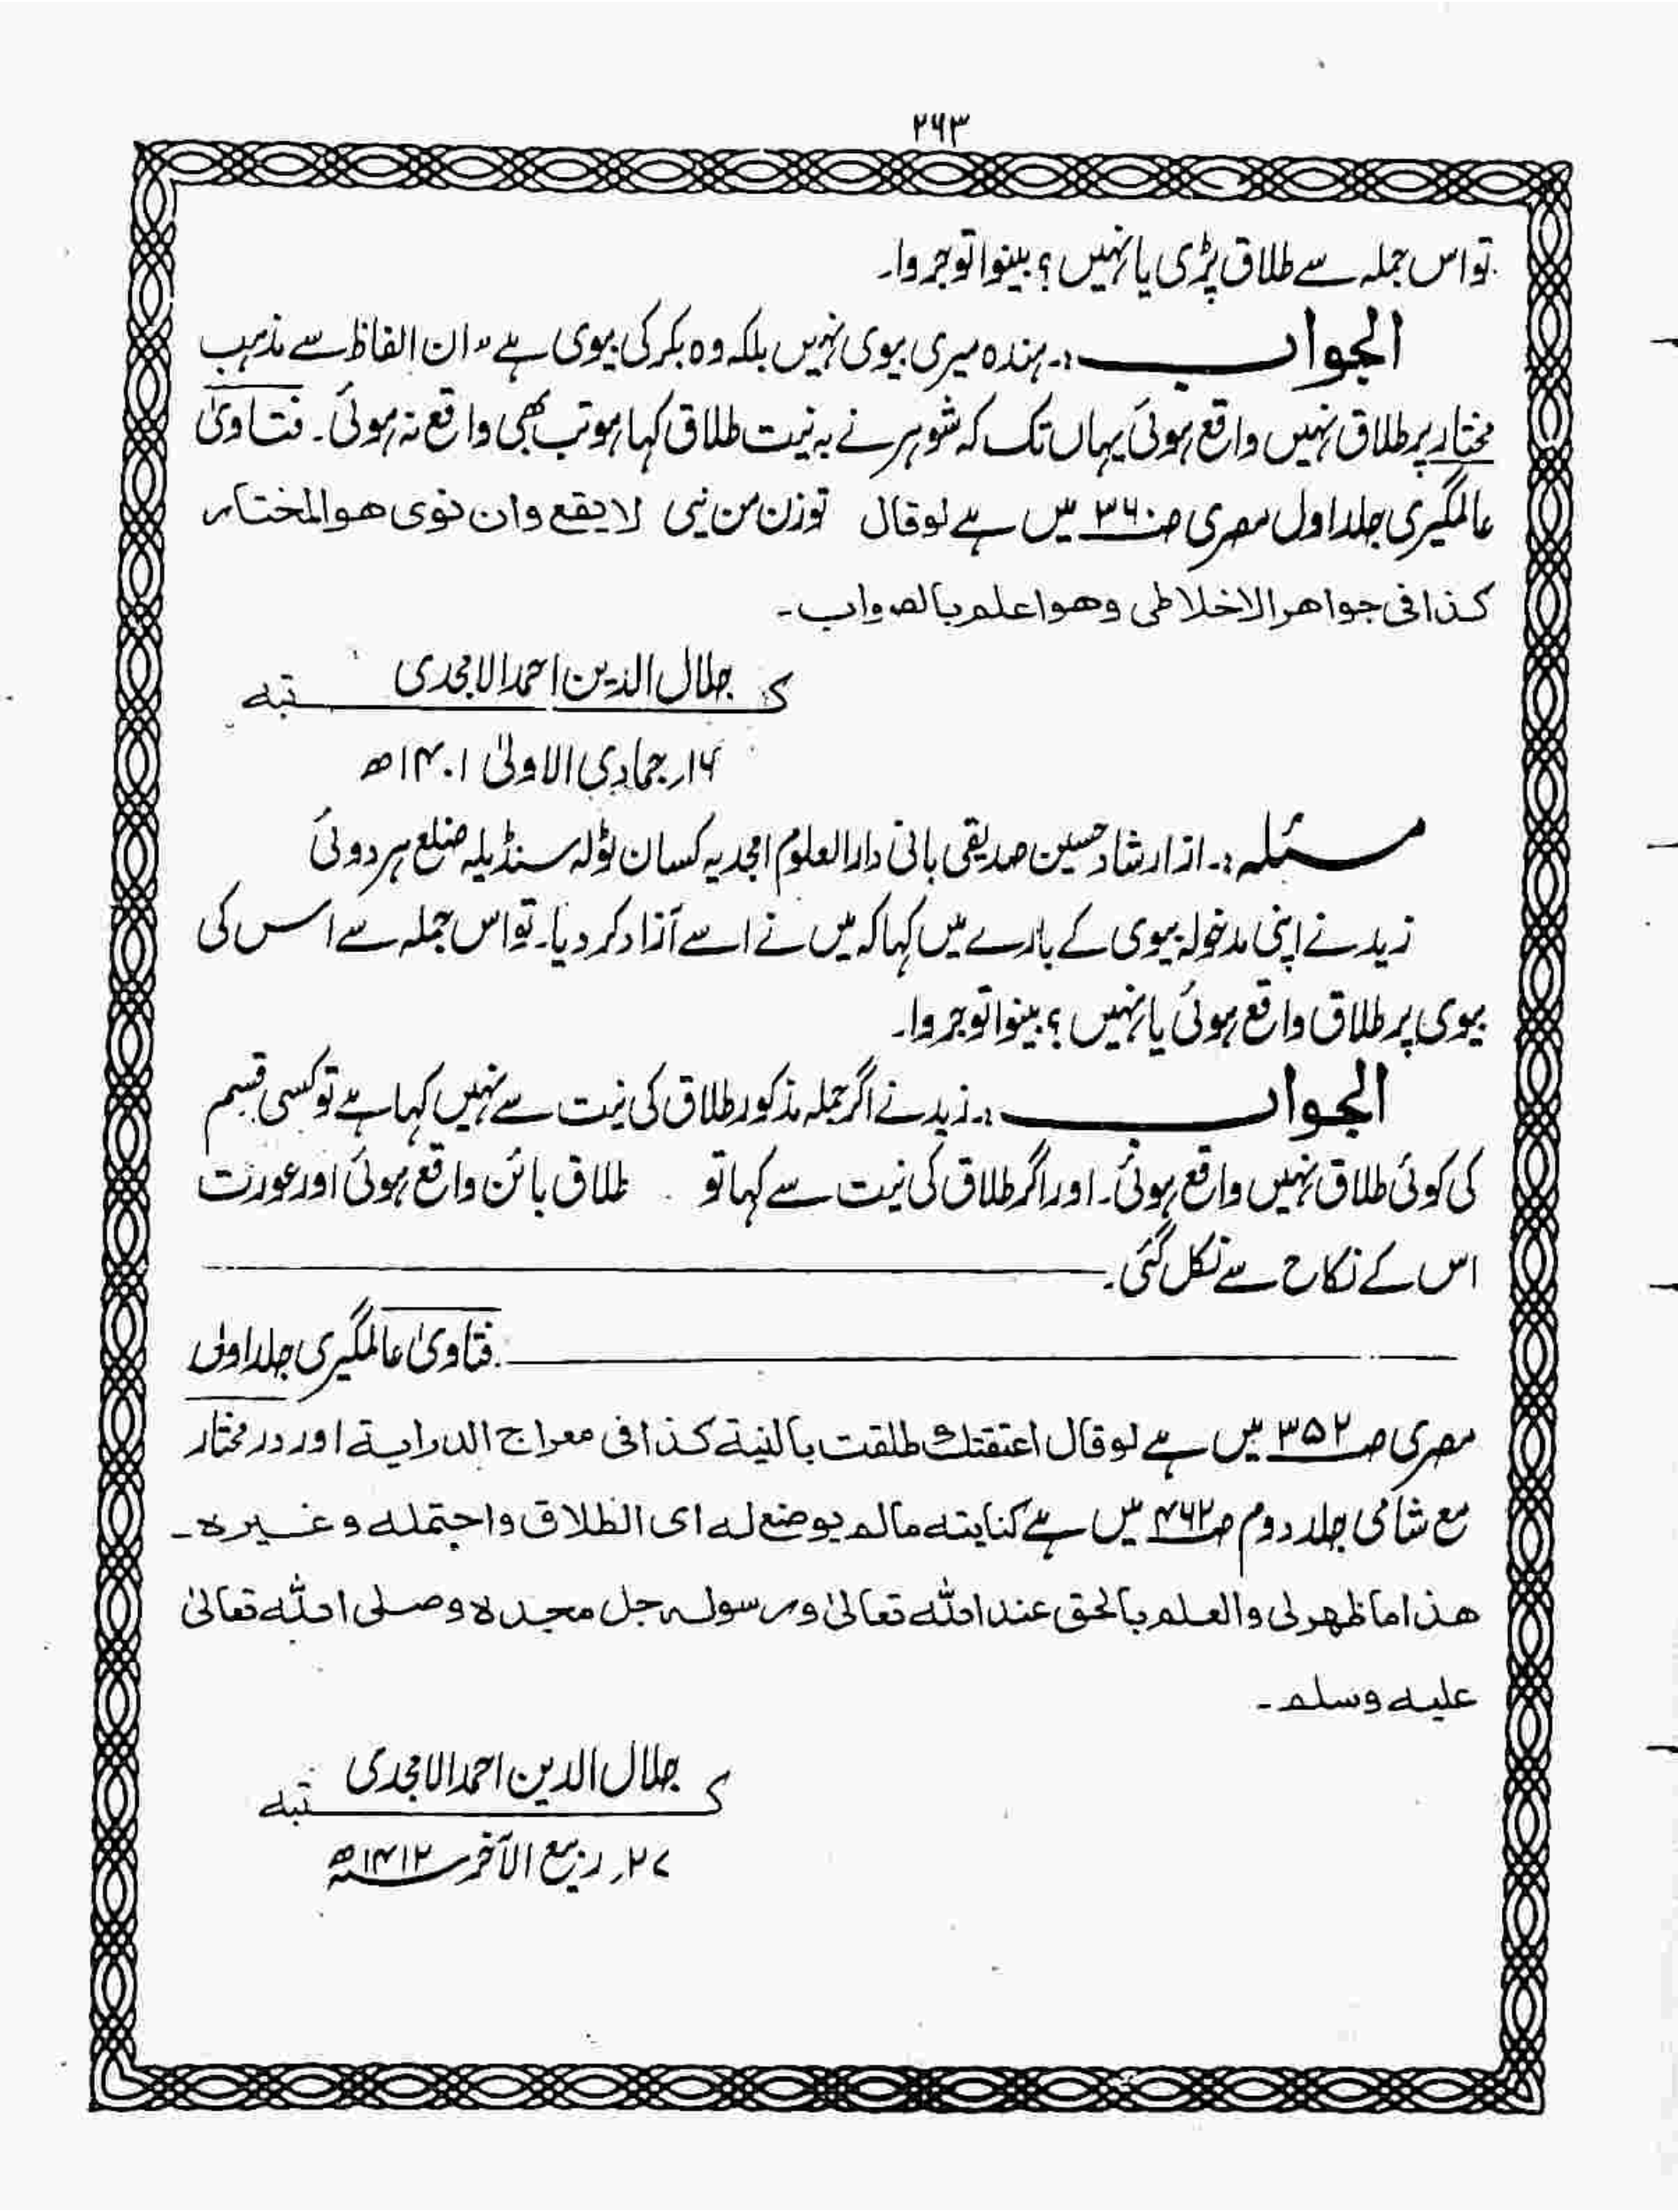 ۲۶۳
تو اس جملہ سے طلاق پڑی یا نہیں ؟ بینوا توجروا۔
الجواب :۔ ہندہ میری بیوی نہیں بلکہ وہ بکر کی بیوی ہے ” ان الفاظ سے مذہب
مختار پر طلاق نہیں واقع ہوئی یہاں تک کہ شوہر نے بہ نیت طلاق کہا ہو تب بھی واقع نہ ہوئی۔ فتاویٰ
عالمگیری جلد اول مصری صـ۳۶۰ میں ہے لوقال توزن من نیی لا یقع وان نوی ھوالمختار
کذافی جواھرالاخلاطی وھواعلم بالصواب۔
کـ جلال الدین احمد الامجدی ـتبہ
۱۶؍ جمادی الاولیٰ ۱۴۰۱ھ
مسئلہ :۔ از ارشاد حسین صدیقی بانی دارالعلوم امجدیہ کسان ٹولہ سنڈیلہ ضلع ہردوئی
زید نے اپنی مدخولہ بیوی کے بارے میں کہا کہ میں نے اسے آزاد کر دیا۔ تو اس جملہ سے اس کی
بیوی پر طلاق واقع ہوئی یا نہیں ؟ بینوا توجروا۔
الجواب :۔ زید نے اگر جملہ مذکور طلاق کی نیت سے نہیں کہا ہے تو کسی قسم
کی کوئی طلاق نہیں واقع ہوئی۔ اور اگر طلاق کی نیت سے کہا تو طلاق بائن واقع ہوئی اور عورت
اس کے نکاح سے نکل گئی۔
فتاویٰ عالمگیری جلد اول
مصری صـ۳۵۲ میں ہے لوقال اعتقتك طلقت بالنیة کذافی معراج الدرایة اور در مختار
مع شامی جلد دوم صـ۴۶۲ میں ہے کنایتہ مالم یوضع لہ ای الطلاق واحتملہ وغیرہ۔
ھذا ماظھرلی والعلم بالحق عند اللہ تعالیٰ ورسولہ جل مجدہ وصلی اللہ تعالیٰ
علیہ وسلم۔
کـ جلال الدین احمد الامجدی ـتبہ
۲۷؍ ربیع الآخر ۱۴۱۲ھ